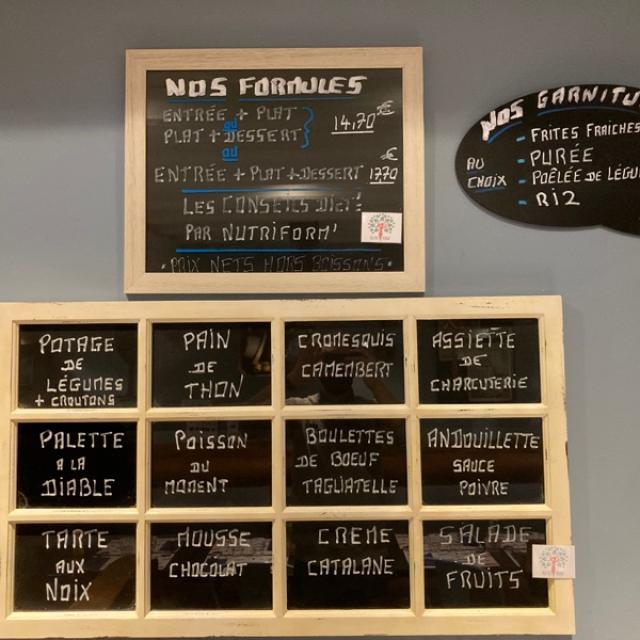 NOS FORMULES
ENTRÉE + PLAT
ou
PLAT + DESSERT
14,70€
ou
ENTRÉE + PLAT + DESSERT 17,70€
LES CONSEILS DIET'!
PAR NUTRIFORM'
• PRIX NETS HORS BOISSONS •
NOS GARNITU
AU CHOIX
- FRITES FRAICHES
- PURÉE
- POÊLÉE DE LÉGU
- RIZ
POTAGE
DE
LÉGUMES
+ CROUTONS
PAIN
DE
THON
CROMESQUIS
CAMEMBERT
ASSIETTE
DE
CHARCUTERIE
PALETTE
A LA
DIABLE
POISSON
DU
MOMENT
BOULETTES
DE BOEUF
TAGLIATELLE
ANDOUILLETTE
SAUCE
POIVRE
TARTE
AUX
NOIX
MOUSSE
CHOCOLAT
CREME
CATALANE
SALADE
DE
FRUITS